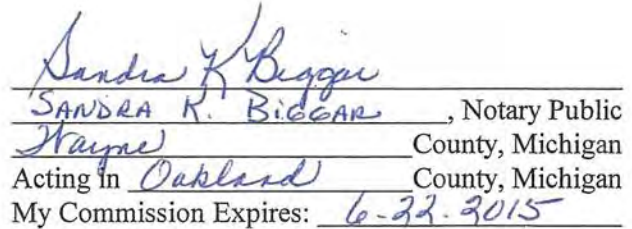 Sandra K Biggar
SANDRA K. BIGGAR, Notary Public
Wayne County, Michigan
Acting in Oakland County, Michigan
My Commission Expires: 6-22-2015